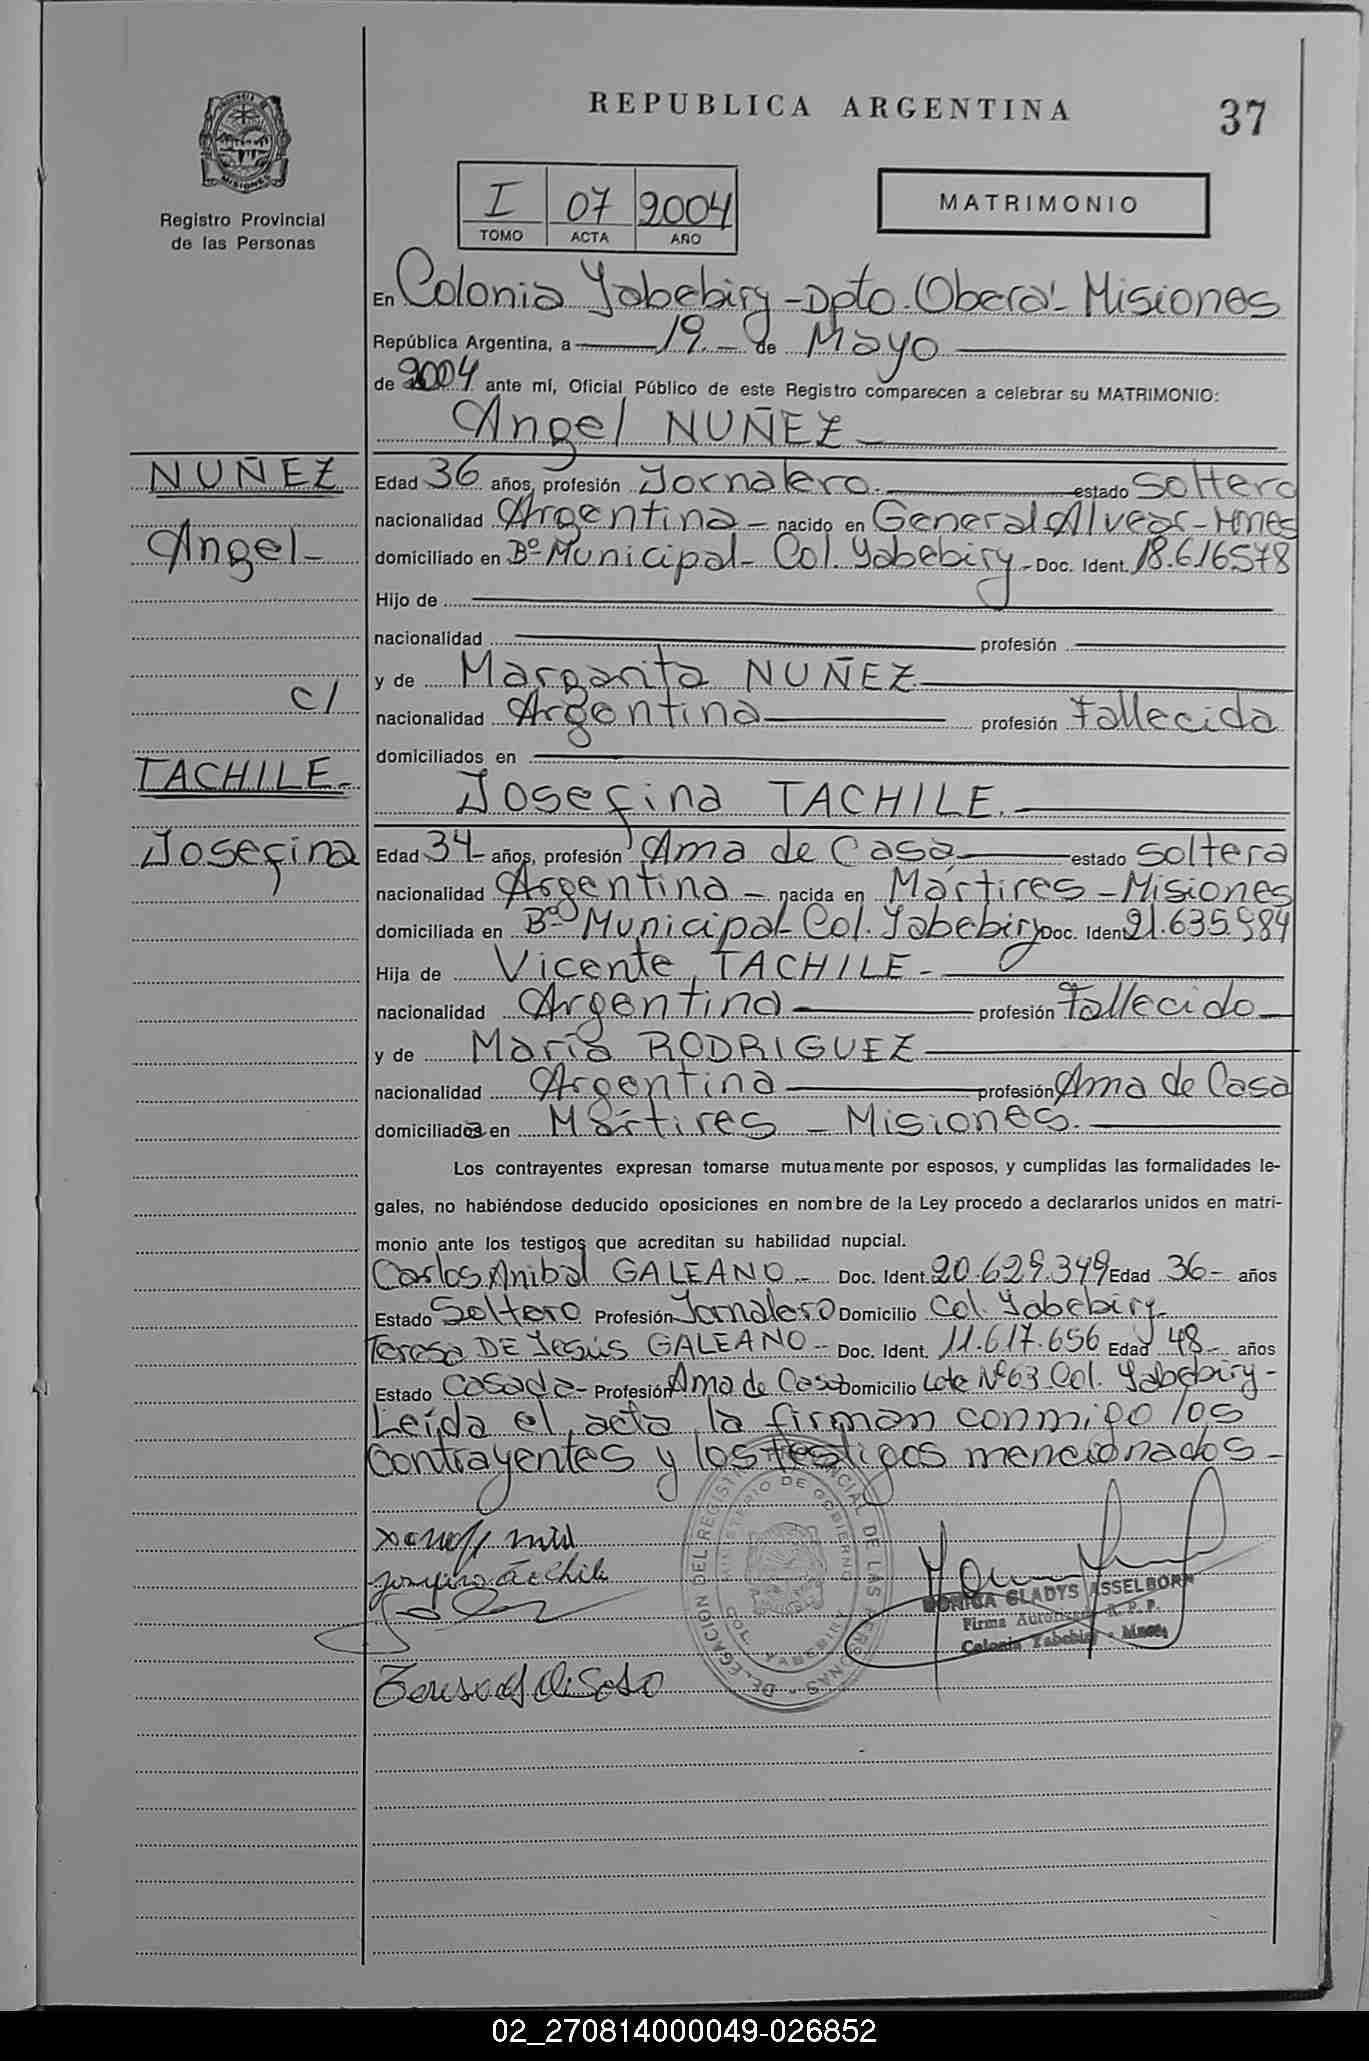 REPUBLICA ARGENTINA
37
MISIONES
Registro Provincial
de las Personas
I 07 2004
TOMO ACTA AÑO
MATRIMONIO
En Colonia Yabebiry - Dpto. Oberá - Misiones
República Argentina, a 19 de Mayo
de 2004 ante mí, Oficial Público de este Registro comparecen a celebrar su MATRIMONIO:
Angel NUÑEZ
NUÑEZ
Angel -
c/
TACHILE -
Josefina
Edad 36 años, profesión Jornalero. estado soltero
nacionalidad Argentina - nacido en General Alvear - Mnes
domiciliado en Bº Municipal - Col. Yabebiry - Doc. Ident. 18.616.578
Hijo de
nacionalidad profesión
y de Margarita NUÑEZ
nacionalidad Argentina profesión Fallecida
domiciliados en
Josefina TACHILE.
Edad 34 - años, profesión Ama de Casa estado soltera
nacionalidad Argentina - nacida en Mártires - Misiones
domiciliada en Bº Municipal - Col. Yabebiry Doc. Iden 21.635.984
Hija de Vicente TACHILE -
nacionalidad Argentina profesión Fallecido
y de María RODRIGUEZ
nacionalidad Argentina profesión Ama de Casa
domiciliada en Mártires - Misiones.
Los contrayentes expresan tomarse mutuamente por esposos, y cumplidas las formalidades le-
gales, no habiéndose deducido oposiciones en nombre de la Ley procedo a declararlos unidos en matri-
monio ante los testigos que acreditan su habilidad nupcial.
Carlos Anibal GALEANO - Doc. Ident. 20.629.349 Edad 36 - años
Estado Soltero Profesión Jornalero Domicilio Col. Yabebiry
Teresa DE Jesús GALEANO - Doc. Ident. 11.617.656 Edad 48 - años
Estado Casada - Profesión Ama de Casa Domicilio Lote Nº 63 Col. Yabebiry -
Leída el acta la firman conmigo los
contrayentes y los testigos mencionados -
DELEGACION DEL REGISTRO PROVINCIAL DE LAS PERSONAS
MINISTERIO DE GOBIERNO
COL. YABEBIRY
MONICA GLADYS ASSELBORN
Firma Autorizada R. P. P.
Colonia Yabebiry - Mnes.
02_270814000049-026852